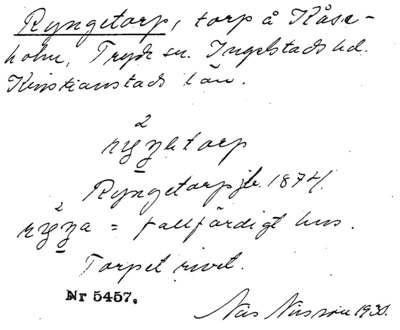 Ryngetorp, torp å Kåse-
holm, Tryde sn. Ingelstads hd.
Kristianstads län.
2
Ryngetorp jb. 1874.
2
= fallfärdigt hus.
Torpet rivet.
Nr 5457.
Nils Nilsson 1930.